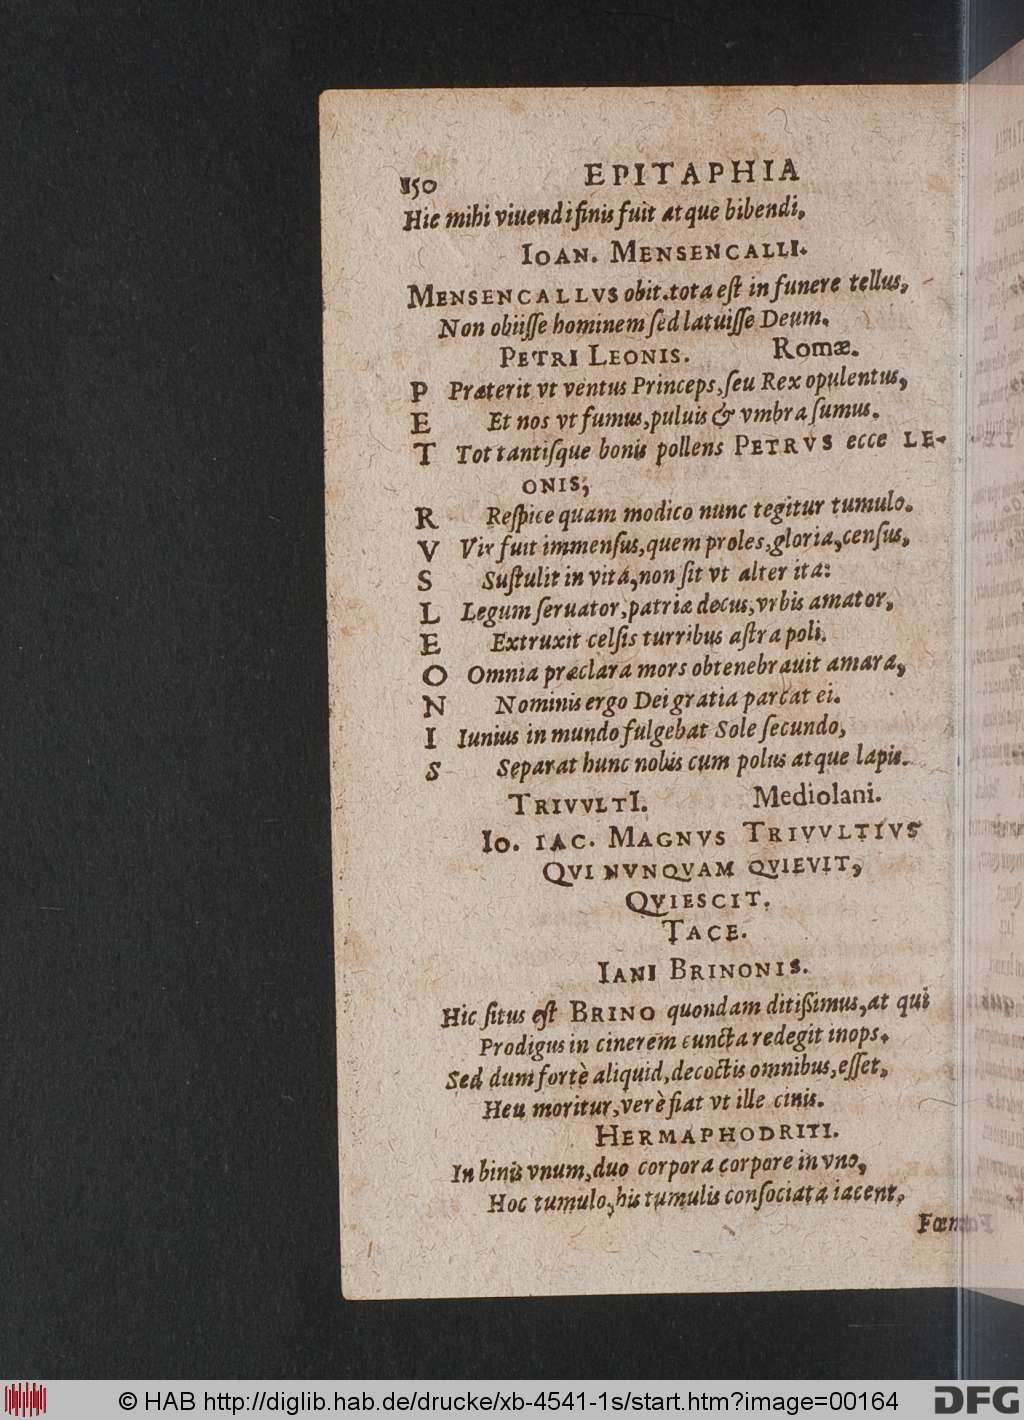 150 EPITAPHIA
Hic mihi viuendi finis fuit atque bibendi,
IOAN. MENSENCALLI.
MENSENCALLVS obit. tota eſt in funere tellus,
Non obiiſſe hominem ſed latuiſſe Deum.
PETRI LEONIS. Romæ.
P Præterit vt ventus Princeps, ſeu Rex opulentus,
E Et nos vt fumus, puluis & vmbra ſumus.
T Tot tantiſque bonis pollens PETRVS ecce LE-
ONIS,
R Reſpice quam modico nunc tegitur tumulo.
V Vir fuit immenſus, quem proles, gloria, cenſus,
S Suſtulit in vita, non ſit vt alter ita:
L Legum ſeruator, patriæ decus, vrbis amator,
E Extruxit celſis turribus aſtra poli.
O Omnia præclara mors obtenebrauit amara,
N Nominis ergo Dei gratia parcat ei.
I Iunius in mundo fulgebat Sole ſecundo,
S Separat hunc nobis cum polus atque lapis.
TRIVVLTI. Mediolani.
IO. IAC. MAGNVS TRIVVLTIVS
QVI NVNQVAM QVIEVIT,
QVIESCIT.
TACE.
IANI BRINONIS.
Hic ſitus eſt BRINO quondam ditiſſimus, at qui
Prodigus in cinerem cuncta redegit inops.
Sed dum fortè aliquid, decoctis omnibus, eſſet,
Heu moritur, verè fiat vt ille cinis.
HERMAPHODRITI.
In binis vnum, duo corpora corpore in vno,
Hoc tumulo, his tumulis conſociata iacent.
© HAB http://diglib.hab.de/drucke/xb-4541-1s/start.htm?image=00164 DFG